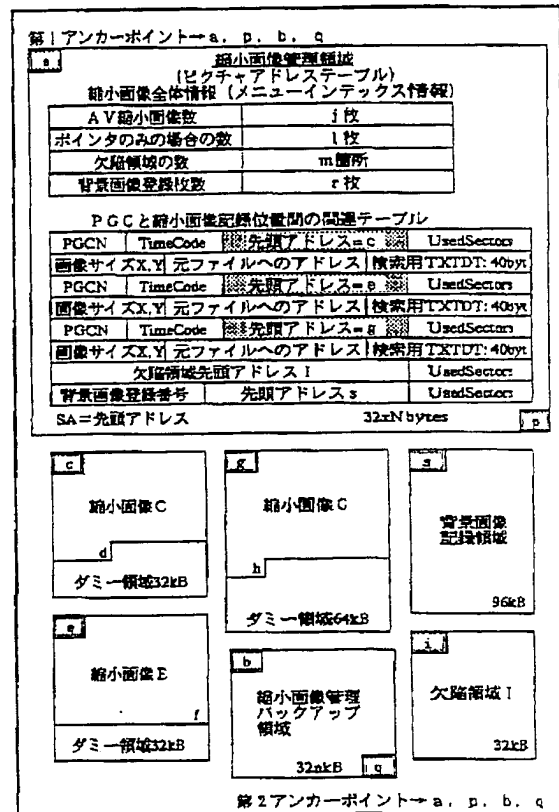 第1アンカーポイント→a, p, b, q
a
縮小画像管理領域
(ピクチャアドレステーブル)
縮小画像全体情報 (メニューインデックス情報)
AV縮小画像数 j枚
ポインタのみの場合の数 l枚
欠陥領域の数 m箇所
背景画像登録枚数 r枚
PGCと縮小画像記録位置間の関連テーブル
PGCN TimeCode 先頭アドレス=c UsedSectors
画像サイズX,Y 元ファイルへのアドレス 検索用TXTDT: 40byt
PGCN TimeCode 先頭アドレス=e UsedSectors
画像サイズX,Y 元ファイルへのアドレス 検索用TXTDT: 40byt
PGCN TimeCode 先頭アドレス=g UsedSectors
画像サイズX,Y 元ファイルへのアドレス 検索用TXTDT: 40byt
欠陥領域先頭アドレス I UsedSectors
背景画像登録番号 先頭アドレス s UsedSectors
SA=先頭アドレス 32xN bytes p
c
縮小画像C
d
ダミー領域32kB
g
縮小画像G
h
ダミー領域64kB
s
背景画像
記録領域
96kB
e
縮小画像E
f
ダミー領域32kB
b
縮小画像管理
バックアップ
領域
32nkB q
i
欠陥領域I
32kB
第2アンカーポイント→a, p, b, q